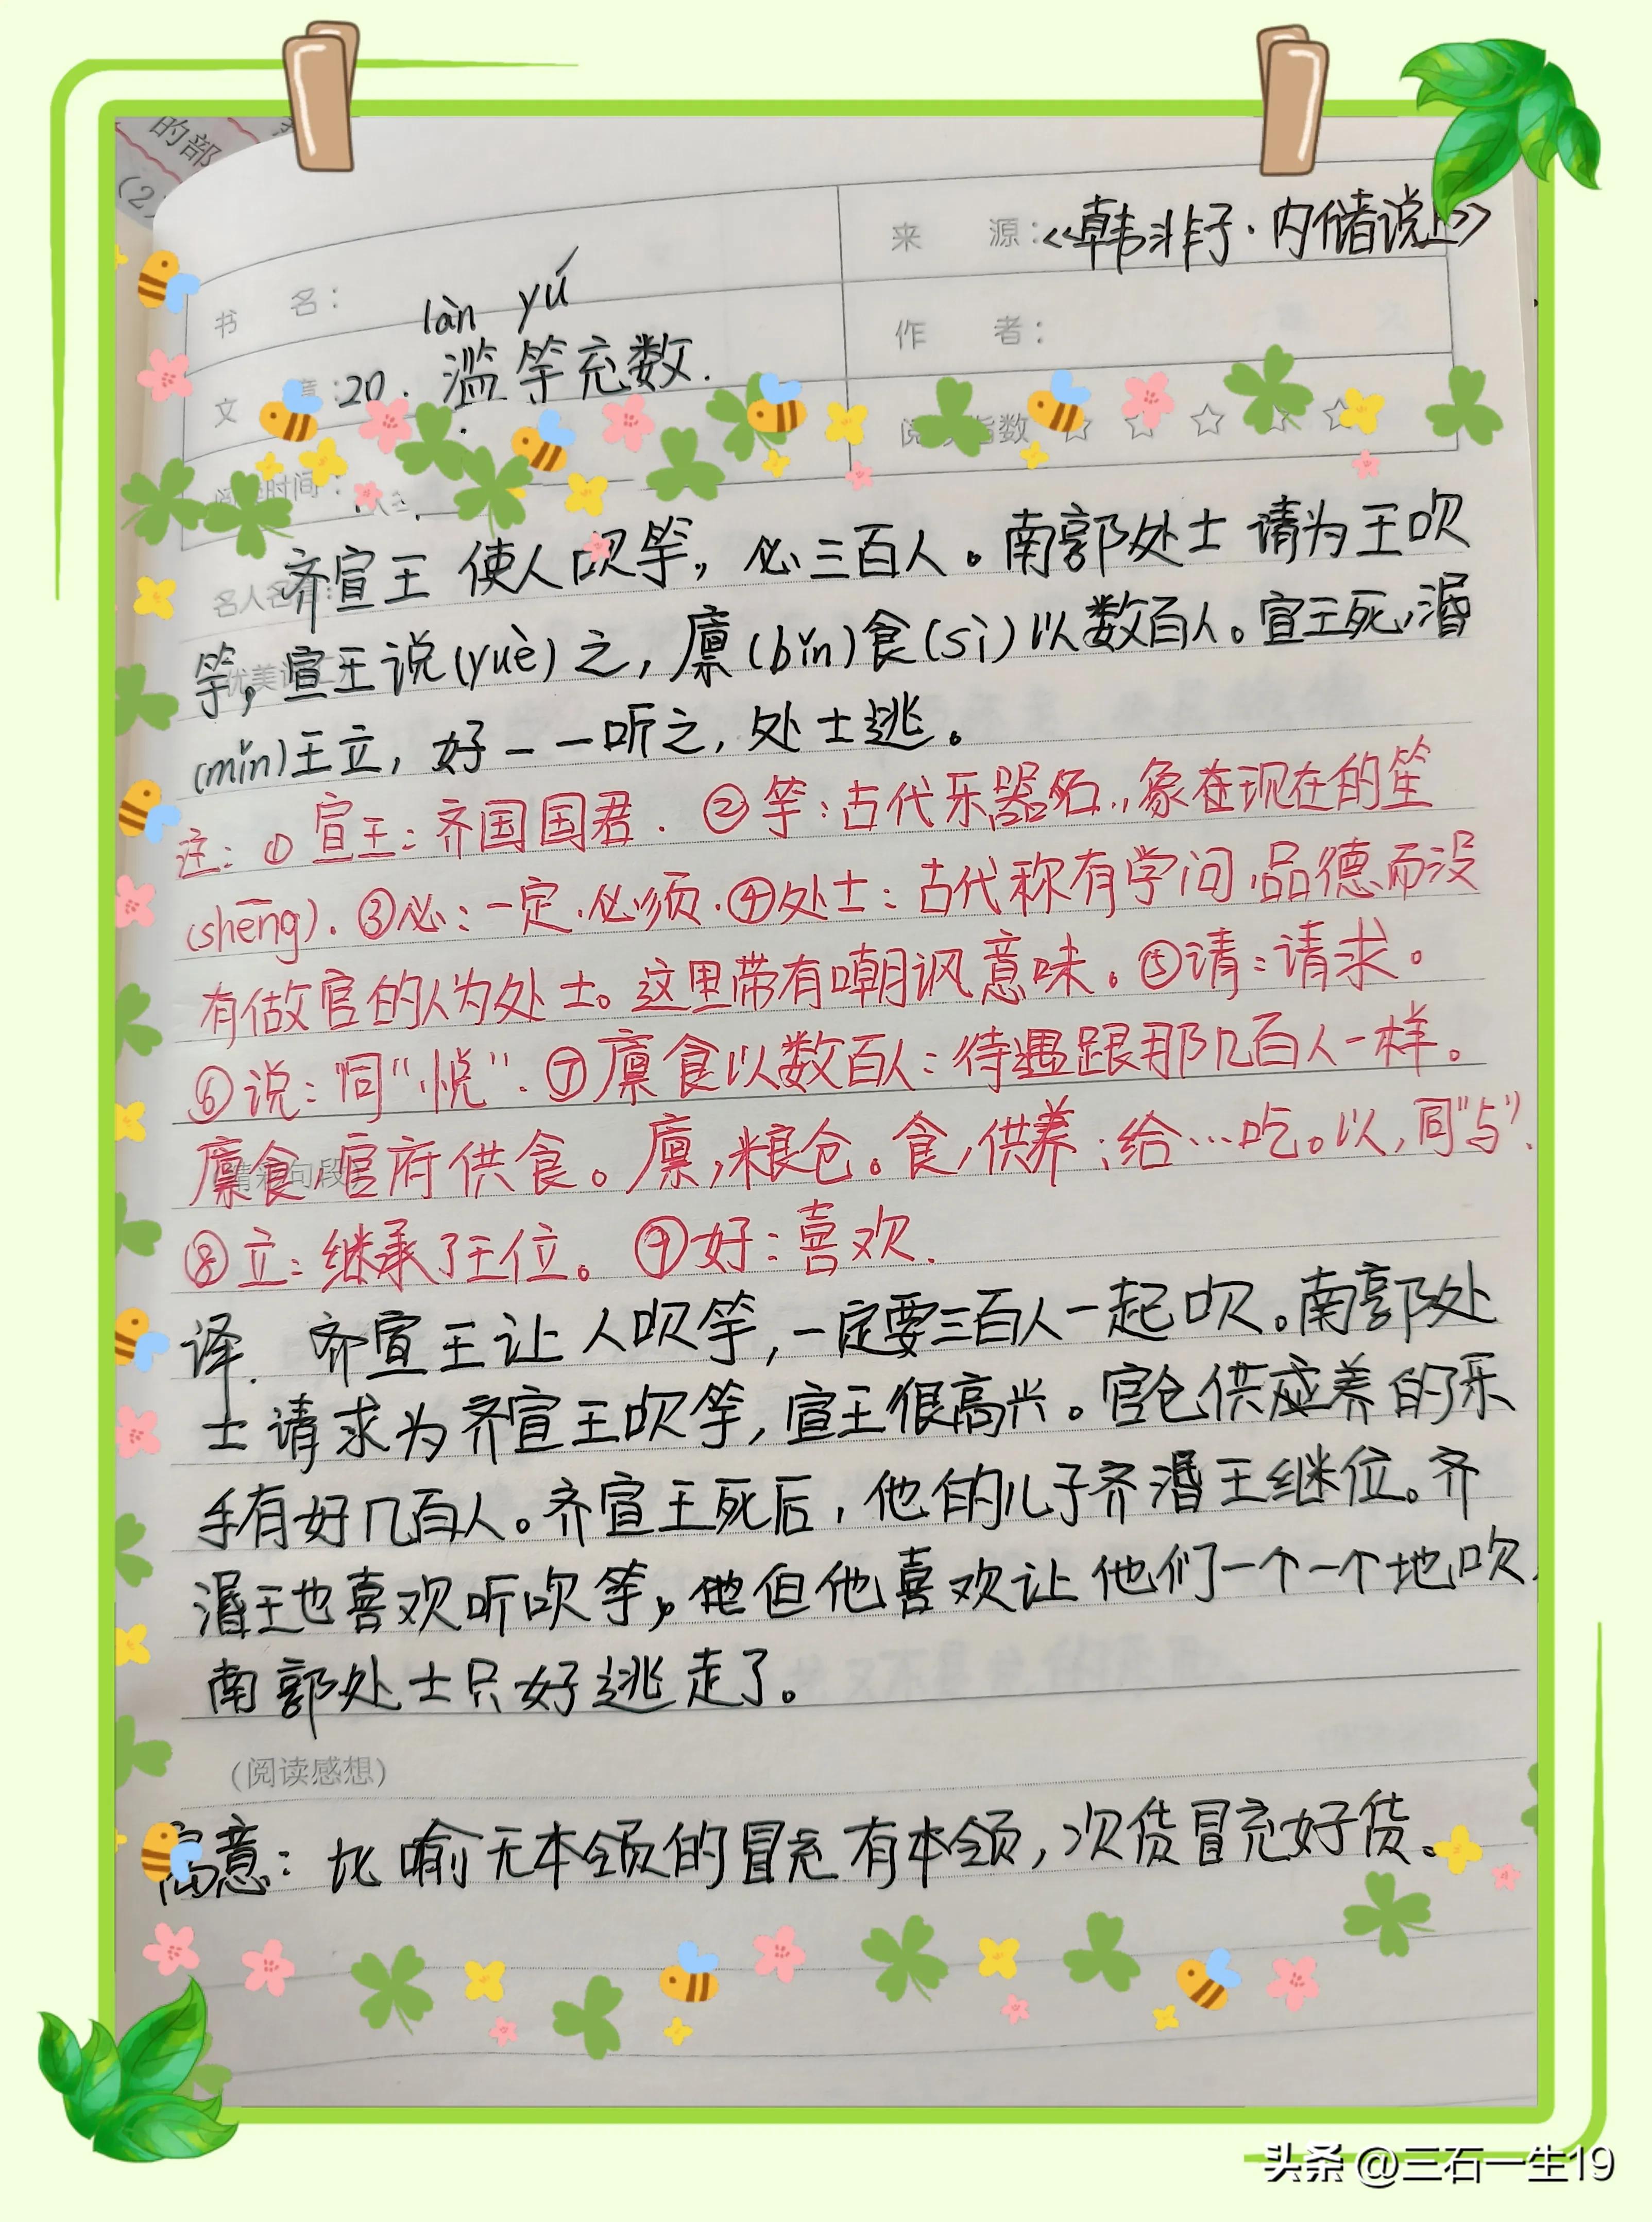 的部
(2)
来 源：《韩非子·内储说上》
书 名：
làn yú
作 者：
文 章：20. 滥竽充数.
阅读指数
阅读时间：
齐宣王 使人吹竽，必三百人。南郭处士 请为王吹
竽，宣王说(yuè)之，廪(bǐn)食(sì)以数百人。宣王死，湣
(mǐn)王立，好一一听之，处士逃。
注：①宣王：齐国国君.②竽：古代乐器名，象在现在的笙
(shēng).③必：一定.必须.④处士：古代称有学问,品德而没
有做官的人为处士。这里带有嘲讽意味。⑤请：请求。
⑥说：同“悦”.⑦廪食以数百人：待遇跟那几百人一样。
廪食,官府供食。廪,粮仓。食,供养;给…吃。以,同“与”.
⑧立：继承了王位。⑨好：喜欢.
译. 齐宣王让人吹竽，一定要三百人一起吹。南郭处
士请求为齐宣王吹竽，宣王很高兴。官仓供养的乐
手有好几百人。齐宣王死后，他的儿子齐湣王继位。齐
湣王也喜欢听吹竽，但他喜欢让他们一个一个地吹.
南郭处士只好逃走了。
(阅读感想)
寓意：比喻无本领的冒充有本领，次货冒充好货。
头条 @三石一生19